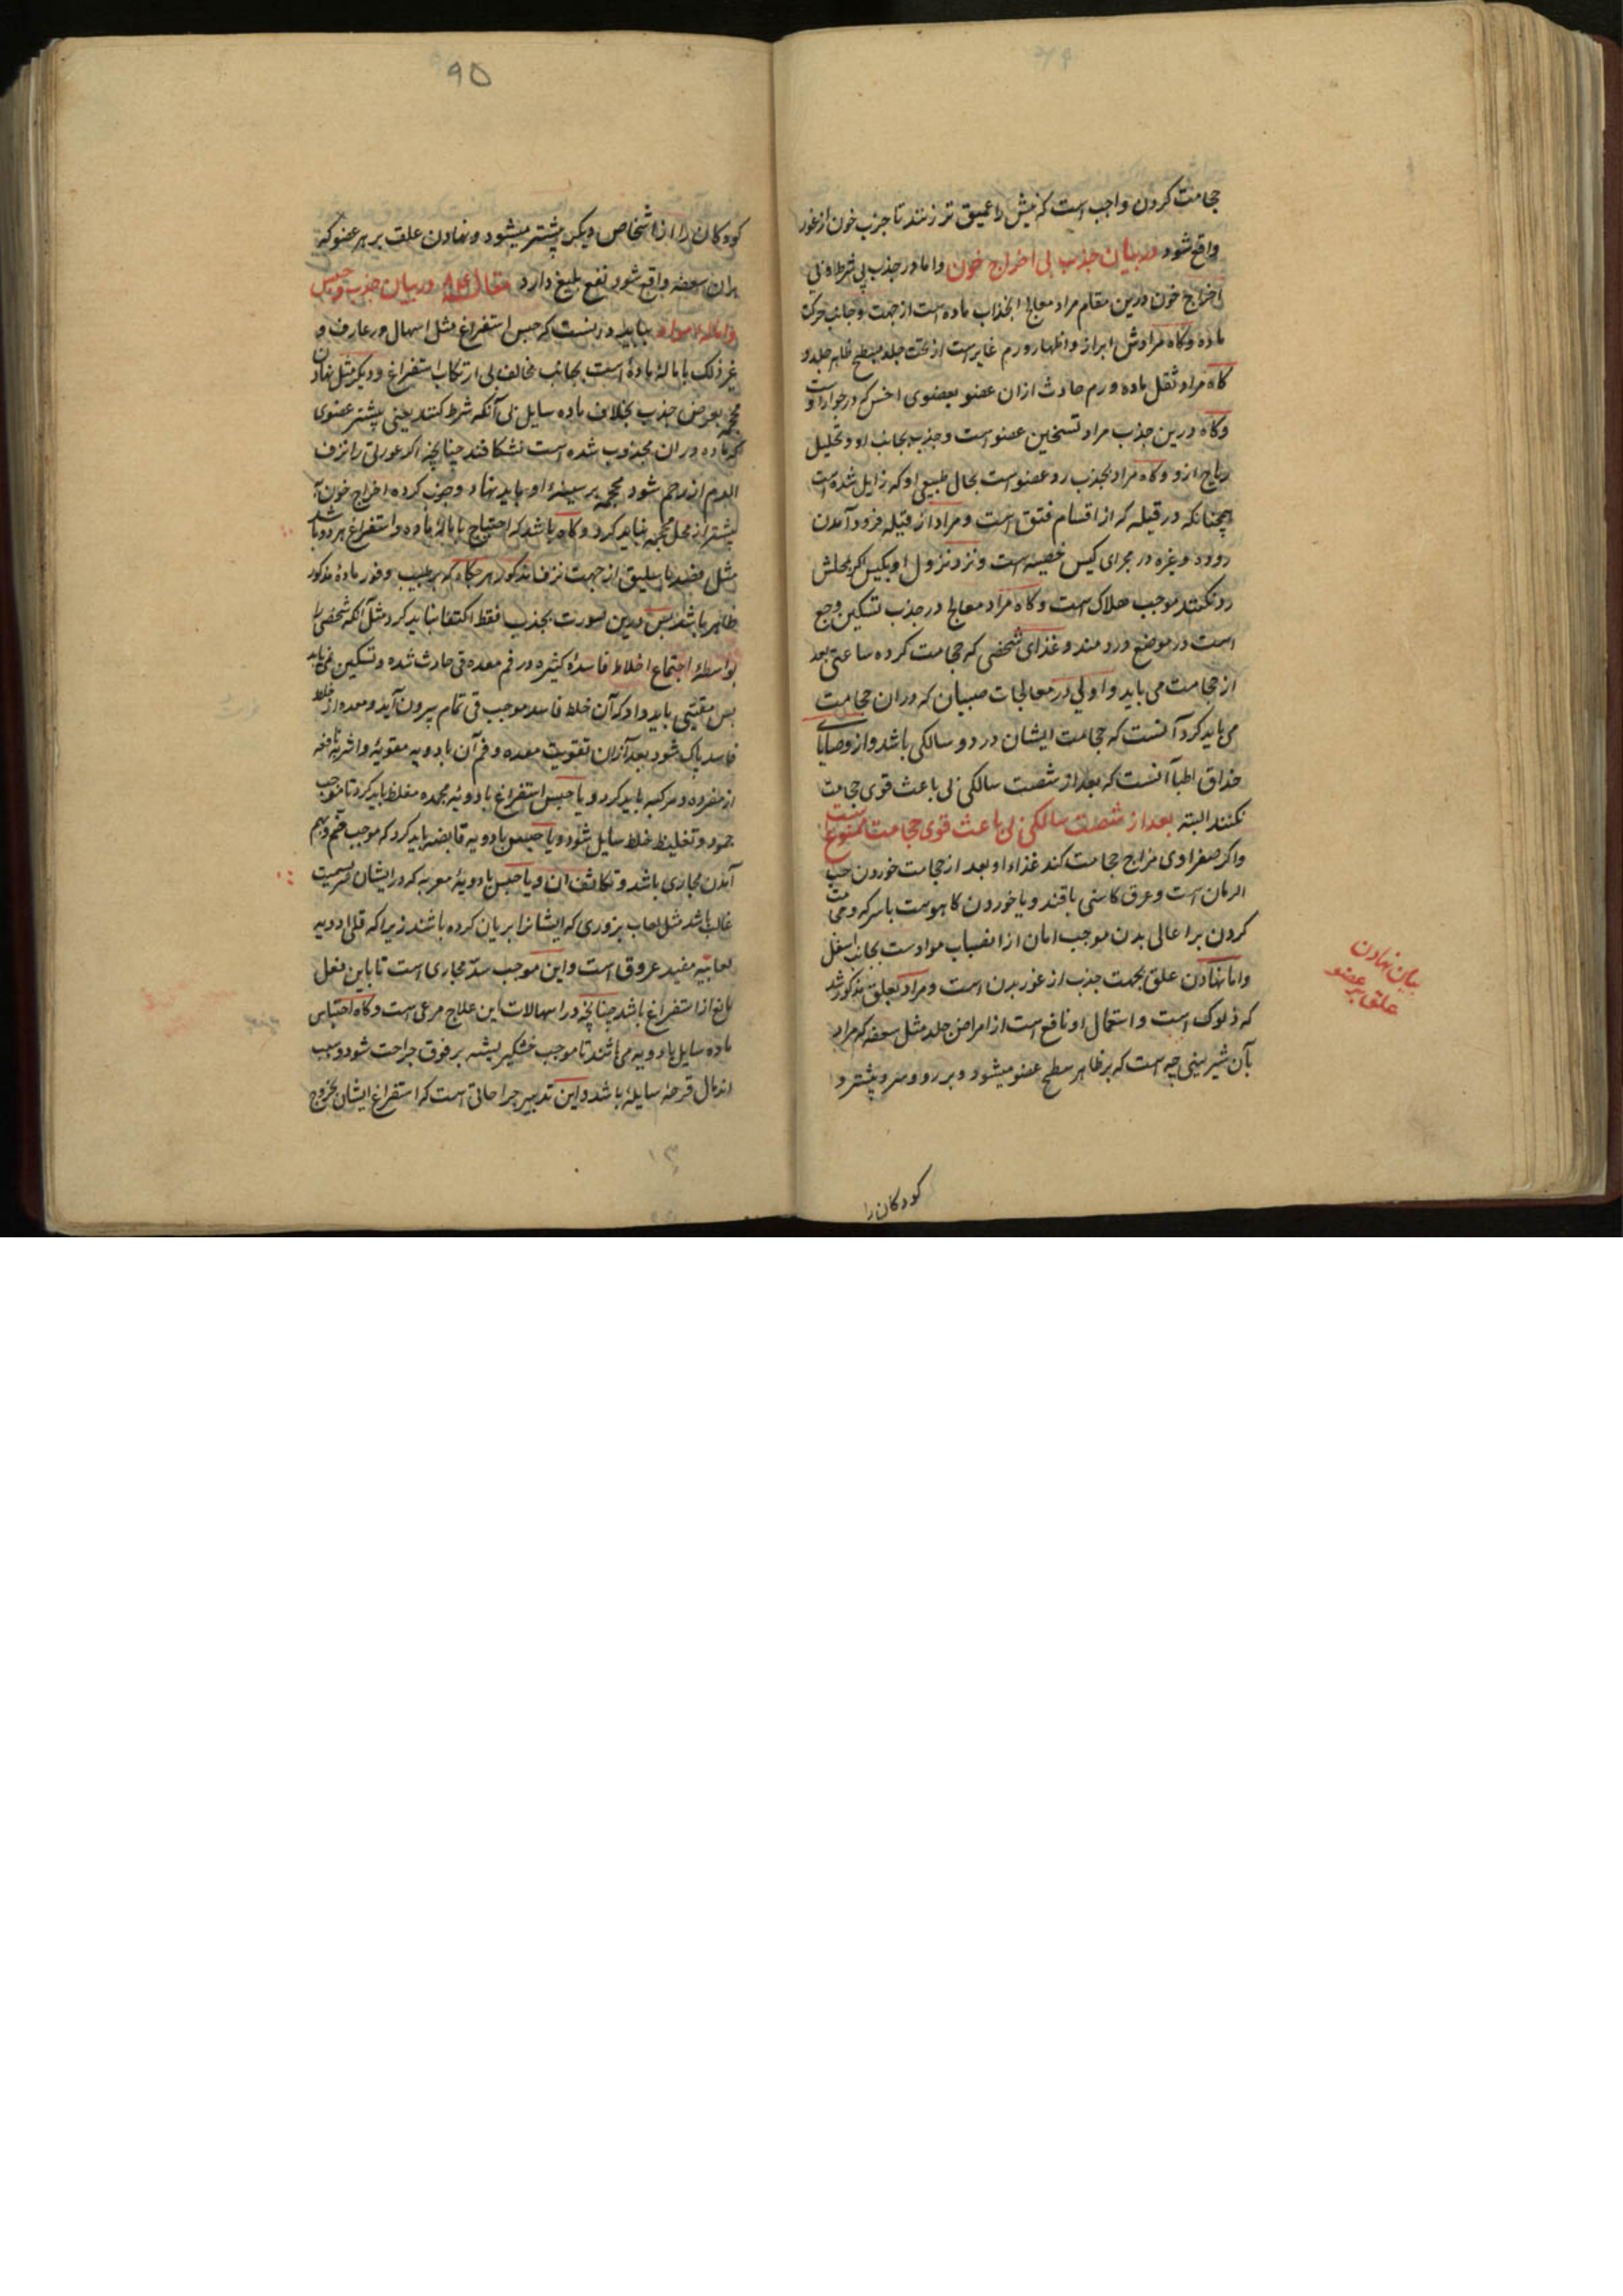 حجامت کردن واجب است که نیش را عمیق تر زنند تا جذب خون از غور
واقع شود در بیان جذب بی اخراج خون و اما در جذب بی شرط و بی
اخراج خون درین مقام مراد معالج انجذاب ماده است از جهت و جانب حرکت
ماده و کاه مرادش ابراز و اظهار ورم غایر است از تحت جلد بسطح ظاهر جلد و
کاه مراد نقل ماده ورم حادث از ان عضو بعضوی اخس که در جوار اوست
و کاه درین جذب مراد تسخین عضو است و جذب بجانب او و تحلیل
ریاح ازو و کاه مراد بجذب رد عضو است بحال طبیعی او که زایل شده است
همچنانکه در قیله که از اقسام فتق است و مراد از قیله فرود آمدن
روده و غیره در مجرای کیس خصیه است و نزد نزول او بکیس اکر بمحلش
رد نکنند موجب هلاک است و کاه مراد معالج در جذب تسکین وجع
است در موضع دردمند و غذای شخصی که حجامت کرده ساعتی بعد
از حجامت می باید و اولی در معالجات صبیان که در ان حجامت
می باید کرد آنست که حجامت ایشان در دو سالکی باشد و از وصایای
حذاق اطبا آنست که بعد از شصت سالکی بی باعث قوی حجامت
نکنند البته بعد از شصت سالکی بی باعث قوی حجامت ممنوع است
و اکر صفراوی مزاج حجامت کند غذاء او بعد از حجامت خوردن حب
الرمان است و عرق کاسنی با قند و یا خوردن کاهوست با سرکه و حجامت
کردن بر اعالی بدن موجب امان از انصباب موادست بجانب اسفل
و اما نهادن علق بجهت جذب از غور بدن است و مراد بعلق مذکور شد
که ذلوک است و استعمال او نافع است از امراض جلد مثل سعفه که مراد
بآن شیرینی چه است که بر ظاهر سطح عضو میشود و بر رو و سر و پیشتر
بیان نهادن
علق بر عضو
کودکان را
۹۵
کودکان را از اشخاص دیکر پیشتر میشود و نهادن علق بر هر عضو که
بران سعفه واقع شود نفع بلیغ دارد مقاله در بیان جذب و حبس
و اماله مواد بباید دانست که حبس استفراغ مثل اسهال و رعاف و
غیر ذلک با ماله ماده است بجانب مخالف بی ارتکاب استفراغ دیکر مثل نهادن
محجمه بغرض جذب بخلاف ماده سایل بی آنکه شرط کنند یعنی پیشتر عضوی
که ماده در ان مجذوب شده است نشکافند چنانچه اکر عورتی را نزف
الدم از رحم شود محجمه بر سینهٔ او باید نهاد و جذب کرده اخراج خون
پیشتر از محل محجمه نباید کرد و کاه باشد که احتیاج با ماله ماده و استفراغ هر دو باشد
مثل فصد باسلیق از جهت نزف مذکور هر جکاه که بر طبیب وفور مادهٔ مذکور
ظاهر باشد پس درین صورت بجذب فقط اکتفا نباید کرد مثل آنکه شخصی را
بواسطهٔ اجتماع اخلاط فاسدهٔ کثیره در فم معده قی حادث شده و تسکین نمی یابد
پس مقیئی باید داد که آن خلط فاسد موجب قی تمام بیرون آید و معده از خلط
فاسد پاک شود بعد از ان تقویت معده و فم آن بادویه مقویه و اشربه نافعه
از مفرده و مرکبه باید کرد و یا حبس استفراغ بادویهٔ مجمده مغلظ باید کرد تا موجب
جمود و تغلیظ خلط سایل شود و یا حبس بادویه قابضه باید کرد که موجب ضم و بهم
آمدن مجاری باشد و تکاثف ان و یا حبس بادویهٔ مغریه که در ایشان لزوجت
غالب باشد مثل لعاب بزوری که ایشانرا بریان کرده باشند زیرا که قلی ادویه
لعابیه مفید عروق است و این موجب سدّ مجاری است تا باین فعل
مانع از استفراغ باشد چنانچه در اسهالات این علاج مرعی است و کاه احتباس
ماده سایل بادویه می باشد تا موجب خشکریشه بر فوق جراحت شود و سبب
اندمال قرحهٔ سایله باشد و این تدبیر جراحاتی است که استفراغ ایشان بخروج